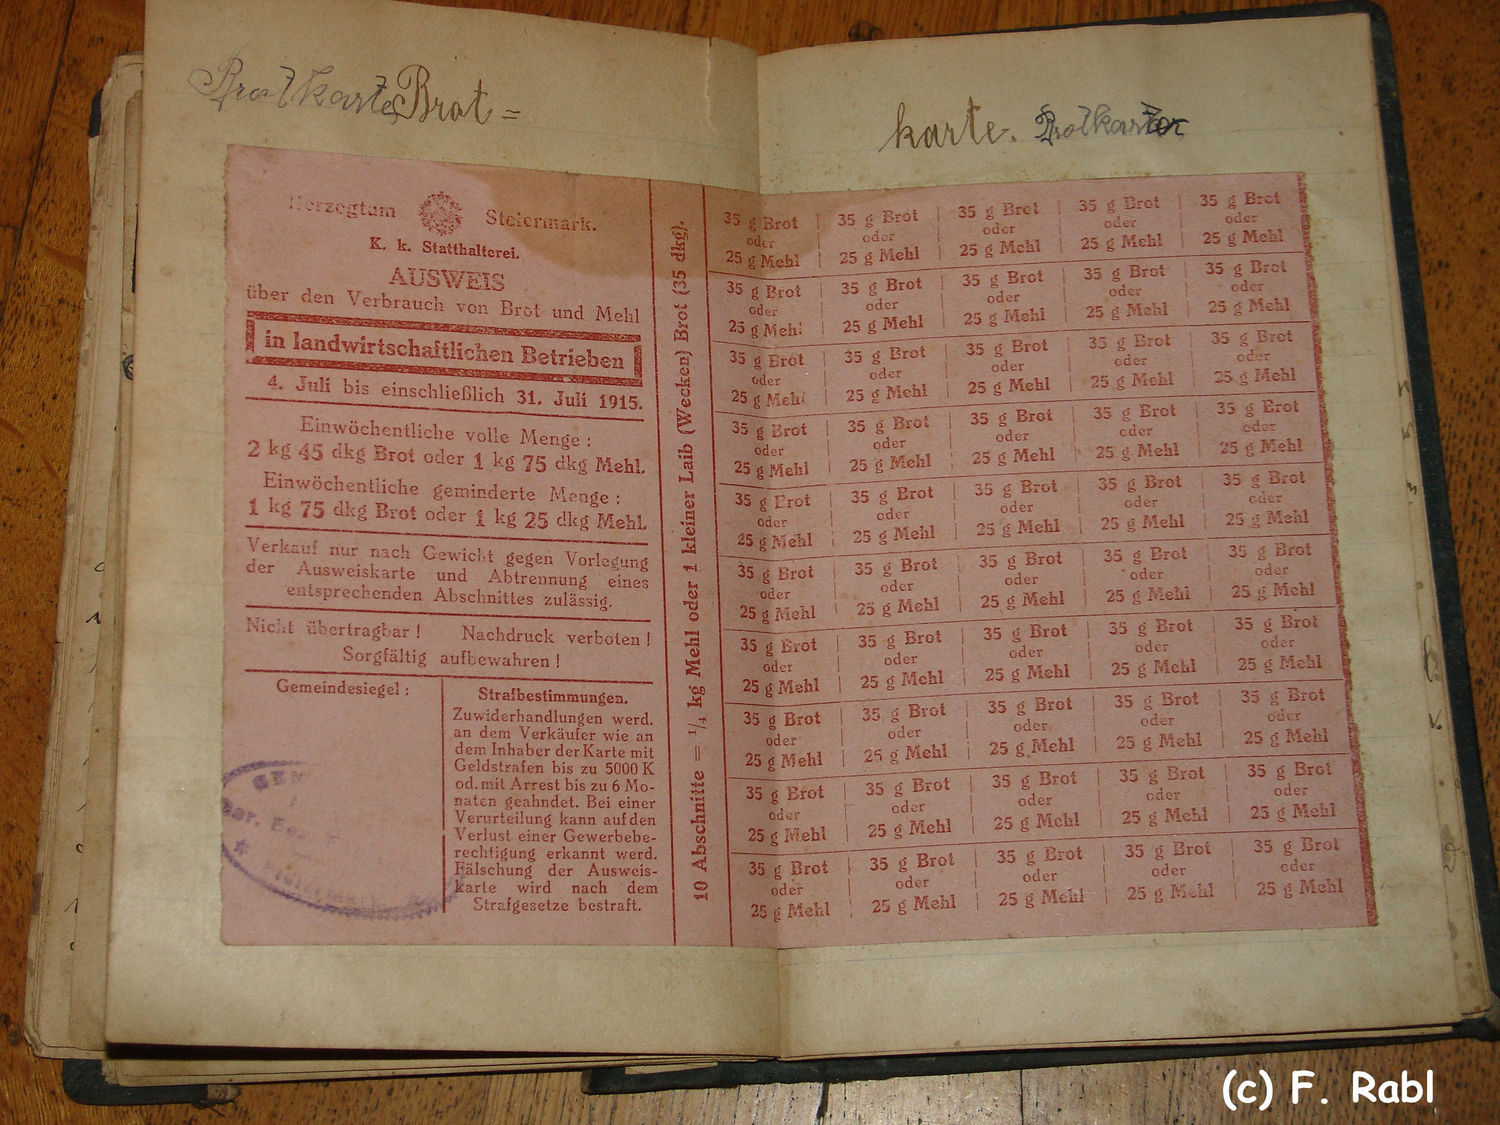 Brotkarte Brot =
karte. Brotkarte
Herzogtum Steiermark.
K. k. Statthalterei.
AUSWEIS
über den Verbrauch von Brot und Mehl
in landwirtschaftlichen Betrieben
4. Juli bis einschließlich 31. Juli 1915.
Einwöchentliche volle Menge :
2 kg 45 dkg Brot oder 1 kg 75 dkg Mehl.
Einwöchentliche geminderte Menge :
1 kg 75 dkg Brot oder 1 kg 25 dkg Mehl.
Verkauf nur nach Gewicht gegen Vorlegung
der Ausweiskarte und Abtrennung eines
entsprechenden Abschnittes zulässig.
Nicht übertragbar ! Nachdruck verboten !
Sorgfältig aufbewahren !
Gemeindesiegel :
Strafbestimmungen.
Zuwiderhandlungen werd.
an dem Verkäufer wie an
dem Inhaber der Karte mit
Geldstrafen bis zu 5000 K
od. mit Arrest bis zu 6 Mo-
naten geahndet. Bei einer
Verurteilung kann auf den
Verlust einer Gewerbebe-
rechtigung erkannt werd.
Fälschung der Ausweis-
karte wird nach dem
Strafgesetze bestraft.
10 Abschnitte = 1/4 kg Mehl oder 1 kleiner Laib (Wecken) Brot (35 dkg).
35 g Brot 35 g Brot 35 g Brot 35 g Brot 35 g Brot
oder oder oder oder oder
25 g Mehl 25 g Mehl 25 g Mehl 25 g Mehl 25 g Mehl
35 g Brot 35 g Brot 35 g Brot 35 g Brot 35 g Brot
oder oder oder oder oder
25 g Mehl 25 g Mehl 25 g Mehl 25 g Mehl 25 g Mehl
35 g Brot 35 g Brot 35 g Brot 35 g Brot 35 g Brot
oder oder oder oder oder
25 g Mehl 25 g Mehl 25 g Mehl 25 g Mehl 25 g Mehl
35 g Brot 35 g Brot 35 g Brot 35 g Brot 35 g Brot
oder oder oder oder oder
25 g Mehl 25 g Mehl 25 g Mehl 25 g Mehl 25 g Mehl
35 g Brot 35 g Brot 35 g Brot 35 g Brot 35 g Brot
oder oder oder oder oder
25 g Mehl 25 g Mehl 25 g Mehl 25 g Mehl 25 g Mehl
35 g Brot 35 g Brot 35 g Brot 35 g Brot 35 g Brot
oder oder oder oder oder
25 g Mehl 25 g Mehl 25 g Mehl 25 g Mehl 25 g Mehl
35 g Brot 35 g Brot 35 g Brot 35 g Brot 35 g Brot
oder oder oder oder oder
25 g Mehl 25 g Mehl 25 g Mehl 25 g Mehl 25 g Mehl
35 g Brot 35 g Brot 35 g Brot 35 g Brot 35 g Brot
oder oder oder oder oder
25 g Mehl 25 g Mehl 25 g Mehl 25 g Mehl 25 g Mehl
35 g Brot 35 g Brot 35 g Brot 35 g Brot 35 g Brot
oder oder oder oder oder
25 g Mehl 25 g Mehl 25 g Mehl 25 g Mehl 25 g Mehl
35 g Brot 35 g Brot 35 g Brot 35 g Brot 35 g Brot
oder oder oder oder oder
25 g Mehl 25 g Mehl 25 g Mehl 25 g Mehl 25 g Mehl
(c) F. Rabl